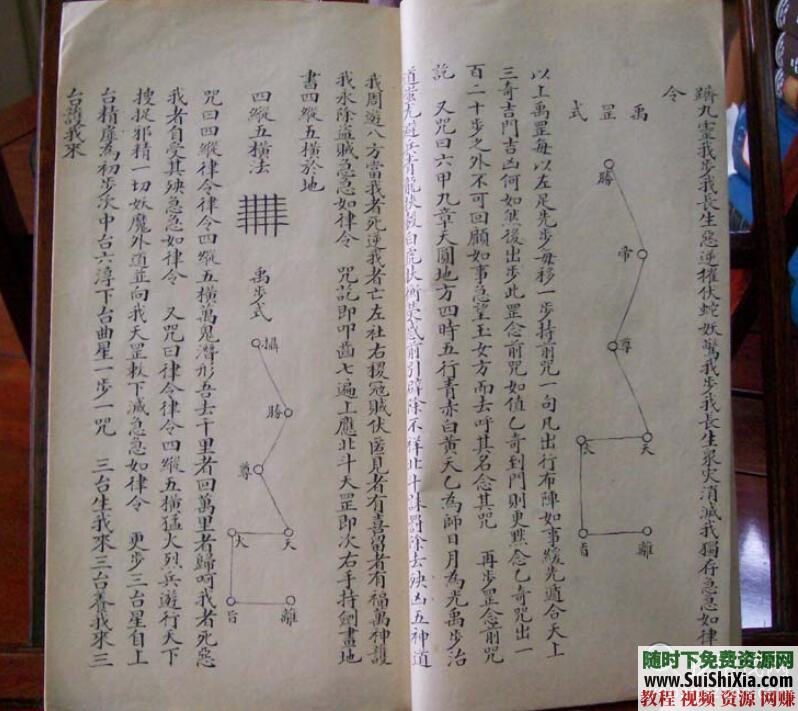 躋九靈我步我長生惡逆權伏蛇妖驚我步我長生衆災消滅我獨存急急如律
令
禹罡式
勝
帝
尊
天
大
旨
離
以上禹罡每以左足先步每移一步持前咒一句凡出行布陣如事緩先適合天上
三奇吉門吉凶何如然後出步此罡念前咒如值乙奇到門則更默念乙奇咒出一
百二十步之外不可回顧如事急望玉女方而去呼其名念其咒 再步罡念前咒
訖 又咒曰六甲九章天圓地方四時五行青赤白黃天乙為師日月為光禹步治
道蚩尤避兵青龍挾轂白虎扶衡熒惑前引辟除不祥北斗誅罰除去殃凶五神道
我周遊八方當我者死逆我者亡左社右稷寇賊伏匿見者有喜留者有福萬神護
我永除盜賊急急如律令 咒訖即叩齒七遍上應北斗天罡即次右手持劍畫地
書四縱五橫於地
四縱五橫法 禹步式
攝
勝
尊
天
大
旨
離
咒曰四縱律令律令四縱五橫萬鬼潛形吾去千里者回萬里者歸呵我者死惡
我者自受其殃急急如律令 又咒曰律令律令四縱五橫猛火烈兵遊行天下
搜捉邪精一切妖魔外道並向我天罡敕下滅急急如律令 更步三台星自上
台精虛為初步次中台六淳下台曲星一步一咒 三台生我來三台養我來三
台護我來
随时下免费资源网
www.SuiShiXia.com
教程 视频 资源 网赚